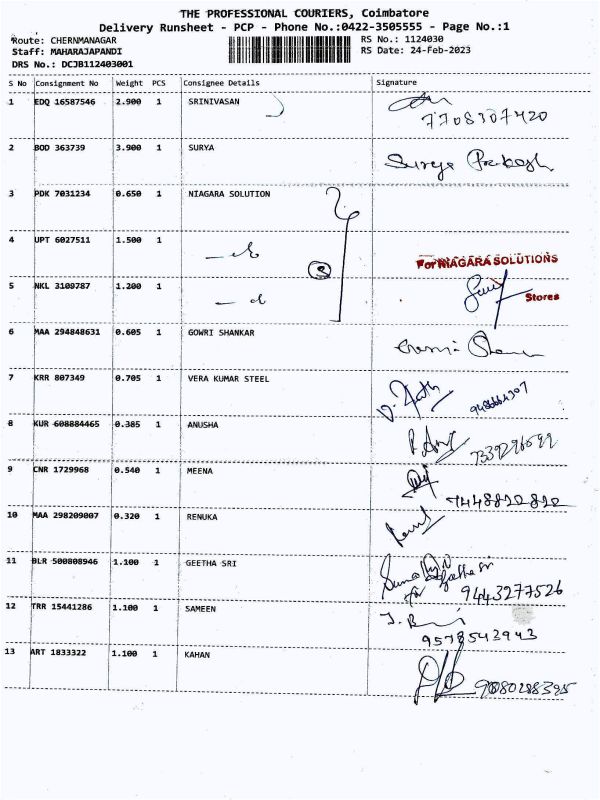 THE PROFESSIONAL COURIERS, Coimbatore
Delivery Runsheet - PCP - Phone No.:0422-3505555 - Page No.:1
Route: CHERNMANAGAR
Staff: MAHARAJAPANDI
DRS No.: DCJB112403001
RS No.: 1124030
RS Date: 24-Feb-2023
S No Consignment No Weight PCS Consignee Details Signature
1 EDQ 16587546 2.900 1 SRINIVASAN
7708307420
2 BOD 363739 3.900 1 SURYA Surya Prakash
3 PDK 7031234 0.650 1 NIAGARA SOLUTION
4 UPT 6027511 1.500 1
3
For NIAGARA SOLUTIONS
5 NKL 3109787 1.200 1
Stores
6 MAA 294848631 0.605 1 GOWRI SHANKAR
7 KRR 807349 0.705 1 VERA KUMAR STEEL
8 KUR 608884465 0.385 1 ANUSHA
9 CNR 1729968 0.540 1 MEENA
10 MAA 298209007 0.320 1 RENUKA
11 BLR 500808946 1.100 1 GEETHA SRI
9443277526
12 TRR 15441286 1.100 1 SAMEEN
9578543943
13 ART 1833322 1.100 1 KAHAN